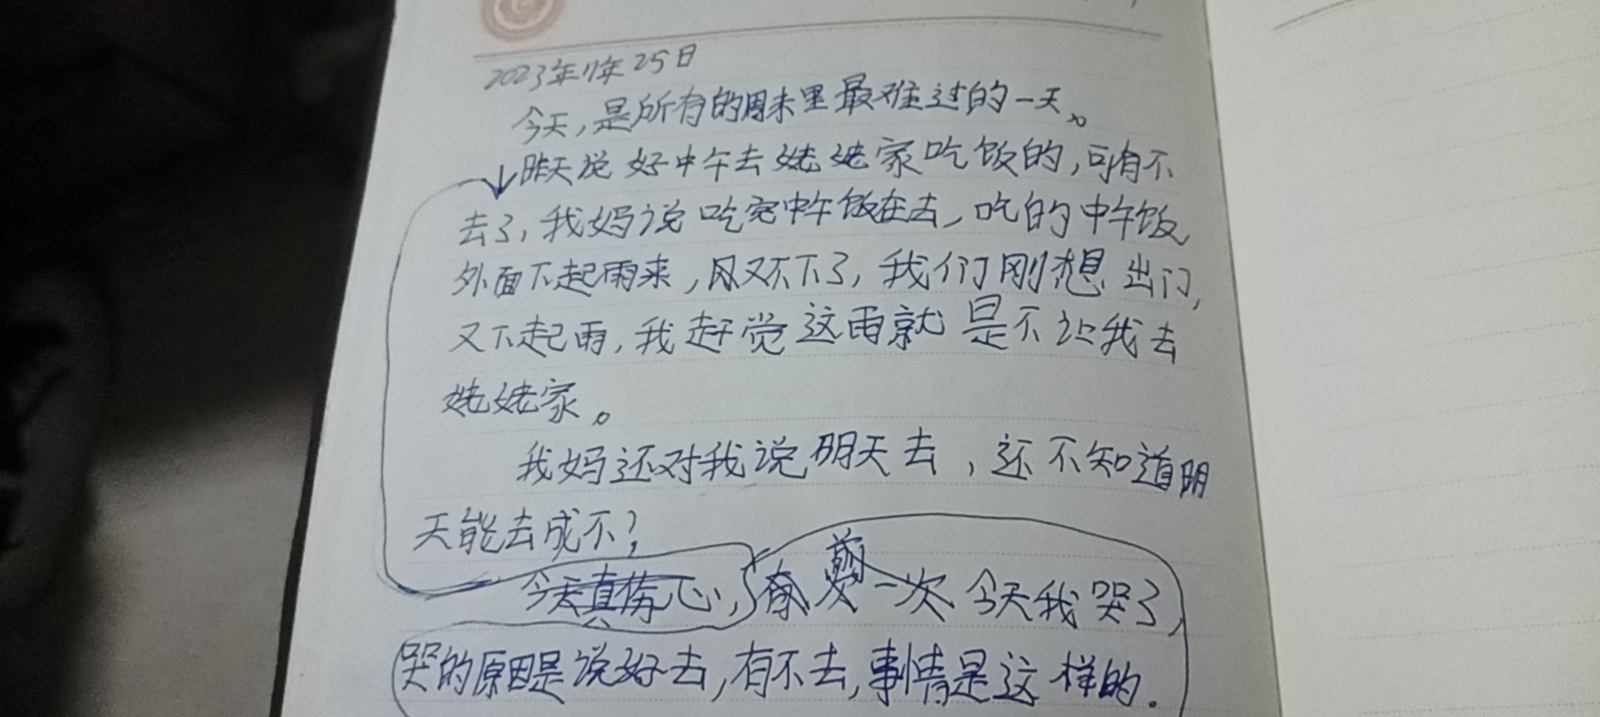 2023年11年25日
今天,是所有的周末里最难过的一天。
昨天说好中午去姥姥家吃饭的,可有不
去了,我妈说吃完中午饭在去,吃的中午饭
外面下起雨来,风又不下了,我们刚想出门,
又下起雨,我赶觉这雨就是不让我去
姥姥家。
我妈还对我说明天去,还不知道明
天能去成不?
今天真伤心,一次今天我哭了,
哭的原因是说好去,有不去,事情是这样的.